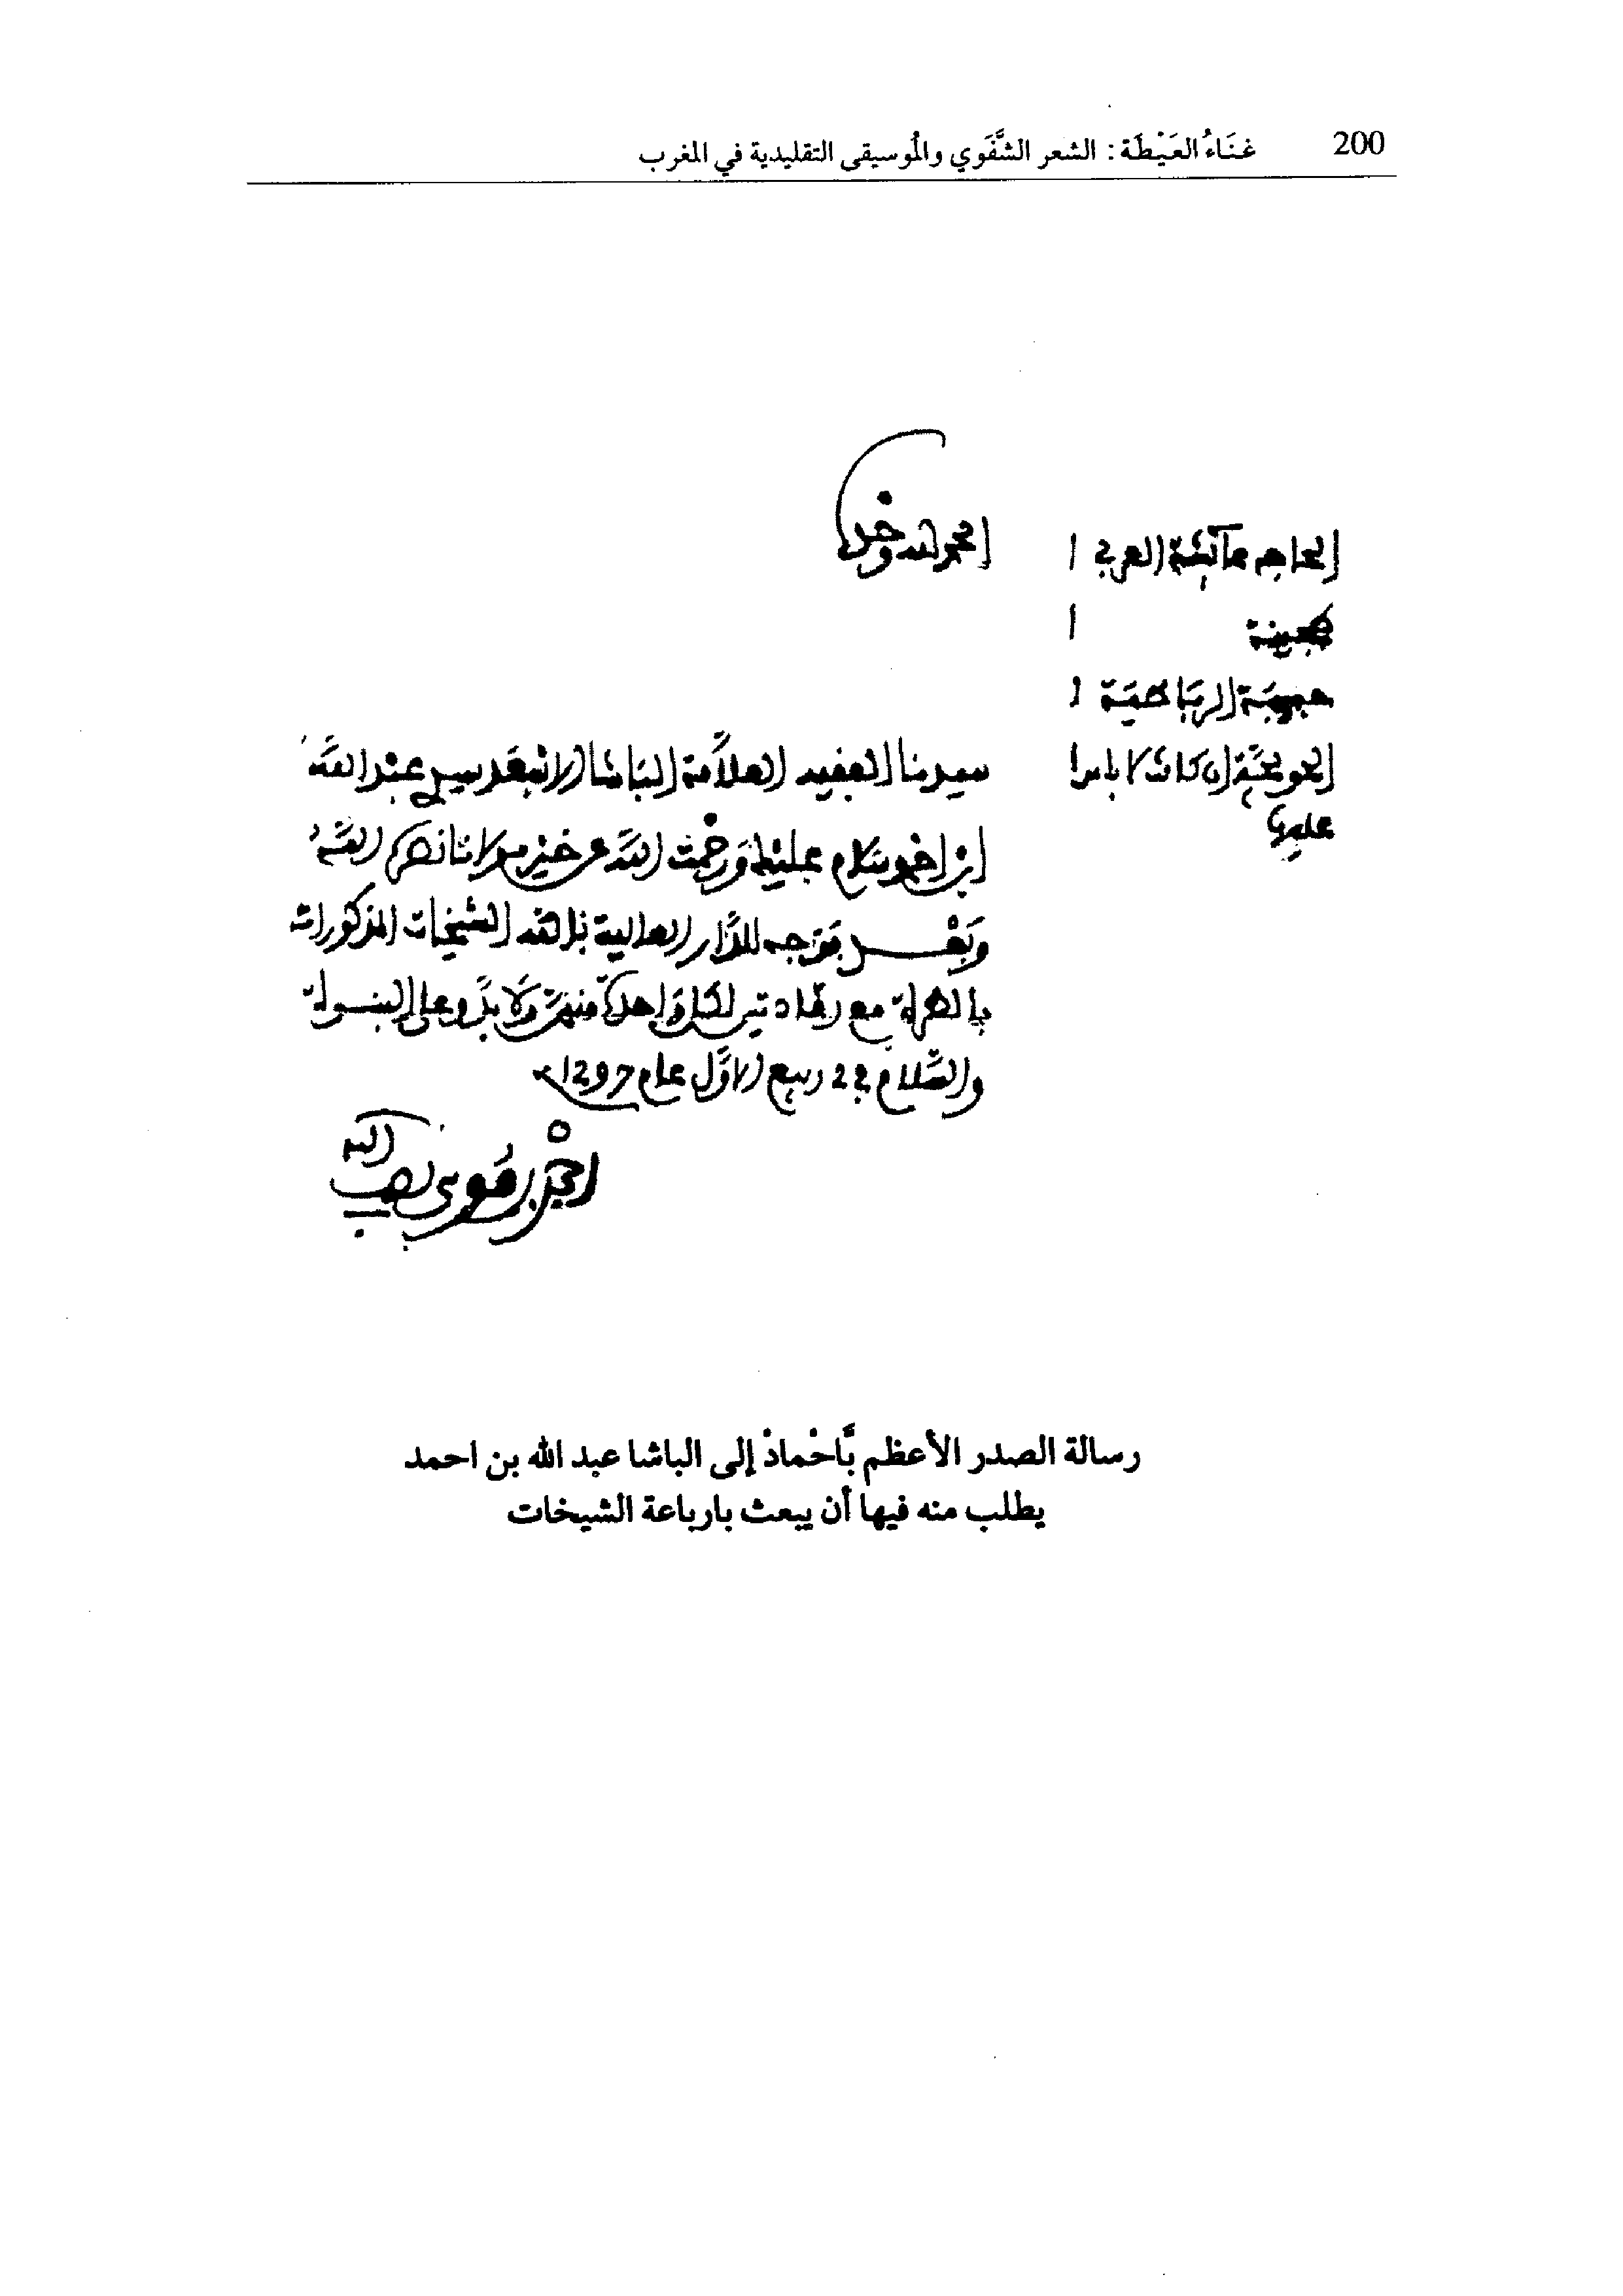 200 غنَاءُ العَيْطَة : الشعر الشَّفَوي والمُوسيقى التقليدية في المغرب
الحمد لله وحده
عائشة العرب ا
ا
ا
الحويجة إن كان لا باس
عليها
سيدنا الفقيه العلامة الباشا الاسعد سيدي عبد الله
ابن احمد سلام عليك ورحمت الله عن خير مولانا نصره الله
وبعد فوجه للدار العالية بالله الشيخات المذكورات
مع لكل واحدة منهن ولا بد وعلى
والسلام في 22 ربيع الاول عام 1297
احمد بن موسى لطف الله به
رسالة الصدر الأعظم بَّاحْمادْ إلى الباشا عبد الله بن احمد
يطلب منه فيها أن يبعث بارباعة الشيخات